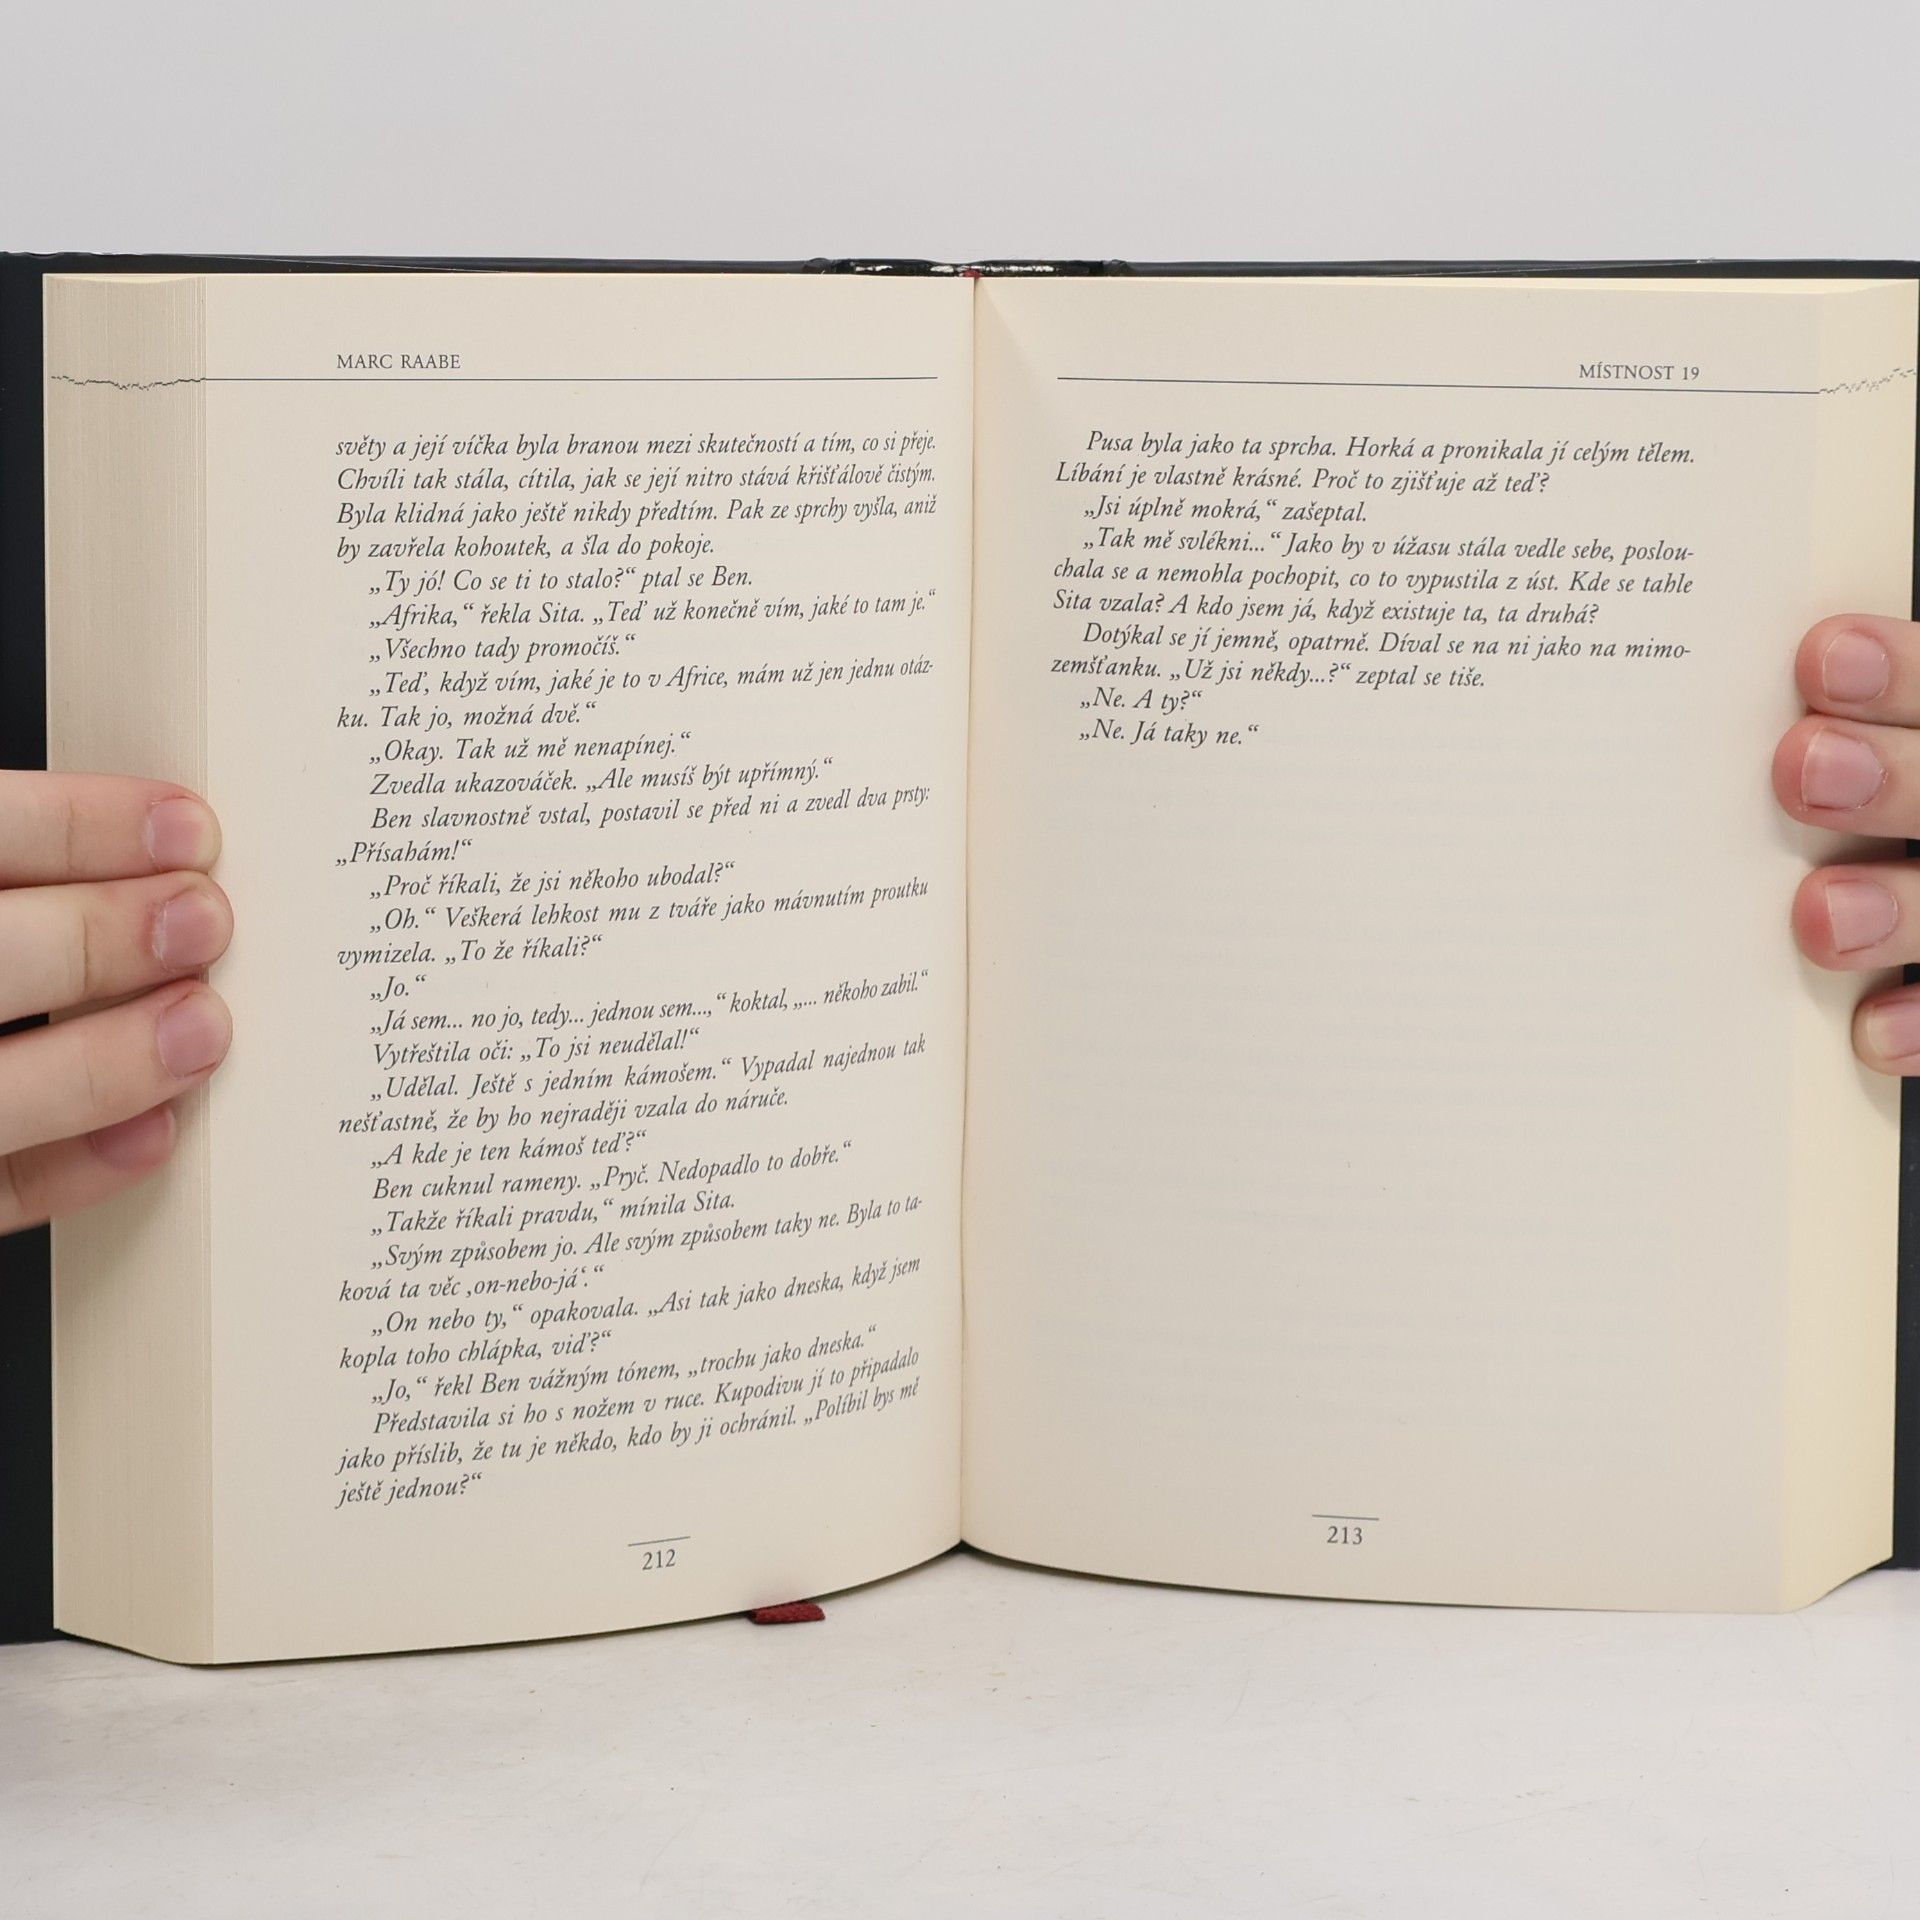 MARC RAABE
světy a její víčka byla branou mezi skutečností a tím, co si přeje.
Chvíli tak stála, cítila, jak se její nitro stává křišťálově čistým.
Byla klidná jako ještě nikdy předtím. Pak ze sprchy vyšla, aniž
by zavřela kohoutek, a šla do pokoje.
„Ty jó! Co se ti to stalo?“ ptal se Ben.
„Afrika,“ řekla Sita. „Teď už konečně vím, jaké to tam je.“
„Všechno tady promočíš.“
„Teď, když vím, jaké je to v Africe, mám už jen jednu otáz-
ku. Tak jo, možná dvě.“
„Okay. Tak už mě nenapínej.“
Zvedla ukazováček. „Ale musíš být upřímný.“
Ben slavnostně vstal, postavil se před ni a zvedl dva prsty:
„Přísahám!“
„Proč říkali, že jsi někoho ubodal?“
„Oh.“ Veškerá lehkost mu z tváře jako mávnutím proutku
vymizela. „To že říkali?“
„Jo.“
„Já sem... no jo, tedy... jednou sem...,“ koktal, „... někoho zabil.“
Vytřeštila oči: „To jsi neudělal!“
„Udělal. Ještě s jedním kámošem.“ Vypadal najednou tak
nešťastně, že by ho nejraději vzala do náruče.
„A kde je ten kámoš teď?“
Ben cuknul rameny. „Pryč. Nedopadlo to dobře.“
„Takže říkali pravdu,“ mínila Sita.
„Svým způsobem jo. Ale svým způsobem taky ne. Byla to ta-
ková ta věc ‚on-nebo-já‘.“
„On nebo ty,“ opakovala. „Asi tak jako dneska, když jsem
kopla toho chlápka, viď?“
„Jo,“ řekl Ben vážným tónem, „trochu jako dneska.“
Představila si ho s nožem v ruce. Kupodivu jí to připadalo
jako příslib, že tu je někdo, kdo by ji ochránil. „Políbil bys mě
ještě jednou?“
212
MÍSTNOST 19
Pusa byla jako ta sprcha. Horká a pronikala jí celým tělem.
Líbání je vlastně krásné. Proč to zjišťuje až teď?
„Jsi úplně mokrá,“ zašeptal.
„Tak mě svlékni...“ Jako by v úžasu stála vedle sebe, poslou-
chala se a nemohla pochopit, co to vypustila z úst. Kde se tahle
Sita vzala? A kdo jsem já, když existuje ta, ta druhá?
Dotýkal se jí jemně, opatrně. Díval se na ni jako na mimo-
zemšťanku. „Už jsi někdy...?“ zeptal se tiše.
„Ne. A ty?“
„Ne. Já taky ne.“
213